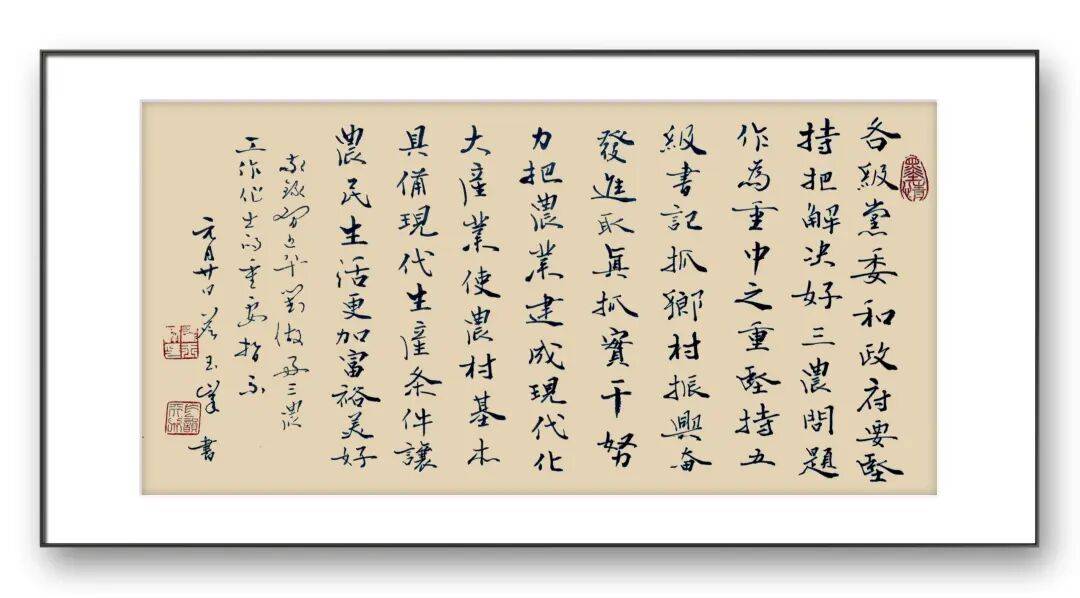 各級黨委和政府要堅
持把解决好三農問題
作為重中之重堅持五
級書記抓鄉村振興奋
發進取眞抓實干努
力把農業建成現代化
大産業使農村基本
具備現代生産条件讓
農民生活更加富裕美好
敬錄習近平對做好三農
工作作出的重要指示
元月廿日玉峰書